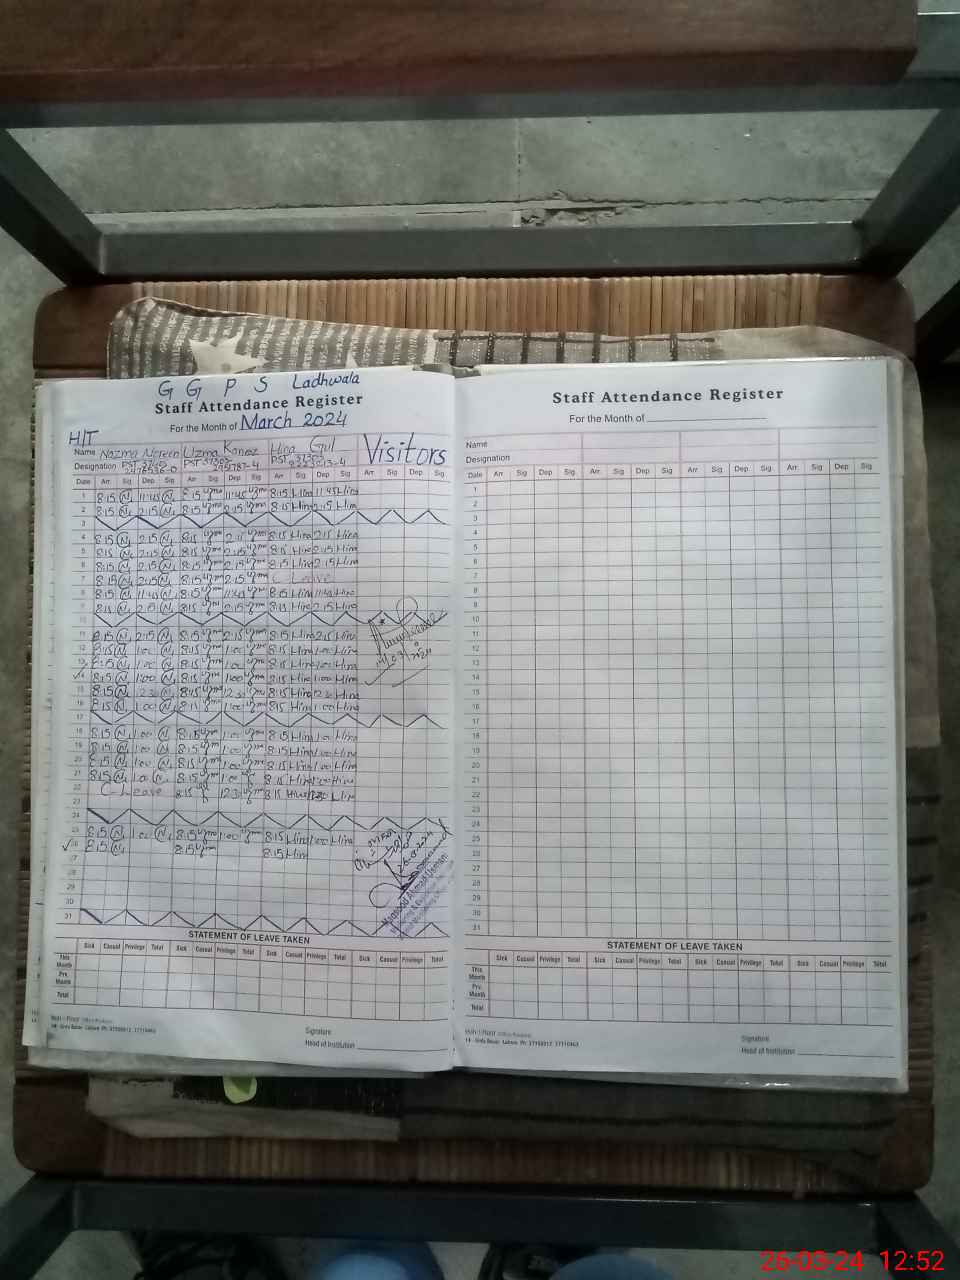 G G P S Ladhwala
Staff Attendance Register
For the Month of March 2024
H/T
Name Nazma Noreen Uzma Kanez Hina Gul Visitors
Designation PST PST PST
Date Arr Sig Dep Sig Arr Sig Dep Sig Arr Sig Dep Sig Arr Sig Dep Sig
1 8:15 N 11:45 N 8:15 Uzma 11:45 Uzma 8:15 Hina 11:45 Hina
2 8:15 N 2:15 N 8:15 Uzma 2:15 Uzma 8:15 Hina 2:15 Hina
3
4 8:15 N 2:15 N 8:15 Uzma 2:15 Uzma 8:15 Hina 2:15 Hina
5 8:15 N 2:15 N 8:15 Uzma 2:15 Uzma 8:15 Hina 2:15 Hina
6 8:15 N 2:15 N 8:15 Uzma 2:15 Uzma 8:15 Hina 2:15 Hina
7 8:15 N 2:15 N 8:15 Uzma 2:15 Uzma C Leave
8 8:15 N 11:45 N 8:15 Uzma 11:45 Uzma 8:15 Hina 11:45 Hina
9 8:15 N 2:15 N 8:15 Uzma 2:15 Uzma 8:15 Hina 2:15 Hina
10
11 8:15 N 2:15 N 8:15 Uzma 2:15 Uzma 8:15 Hina 2:15 Hina
12 8:15 N 1:00 N 8:15 Uzma 1:00 Uzma 8:15 Hina 1:00 Hina
13 8:15 N 1:00 N 8:15 Uzma 1:00 Uzma 8:15 Hina 1:00 Hina
14 8:15 N 1:00 N 8:15 Uzma 1:00 Uzma 8:15 Hina 1:00 Hina
15 8:15 N 12:30 N 8:15 Uzma 12:30 Uzma 8:15 Hina 12:30 Hina
16 8:15 N 1:00 N 8:15 Uzma 1:00 Uzma 8:15 Hina 1:00 Hina
17
18 8:15 N 1:00 N 8:15 Uzma 1:00 Uzma 8:15 Hina 1:00 Hina
19 8:15 N 1:00 N 8:15 Uzma 1:00 Uzma 8:15 Hina 1:00 Hina
20 8:15 N 1:00 N 8:15 Uzma 1:00 Uzma 8:15 Hina 1:00 Hina
21 8:15 N 1:00 N 8:15 Uzma 1:00 Uzma 8:15 Hina 1:00 Hina
22 C-Leave 8:15 12:30 Uzma 8:15 Hina 12:30 Hina
23
24
25 8:15 N 1:00 N 8:15 Uzma 1:00 Uzma 8:15 Hina 1:00 Hina
26 8:15 N 8:15 Uzma 8:15 Hina
27
28
29
30
31
26-03-2024
Maqsood Ahmad Usman
STATEMENT OF LEAVE TAKEN
Sick Casual Privilege Total Sick Casual Privilege Total Sick Casual Privilege Total Sick Casual Privilege Total
This Month
Prv. Month
Total
Signature
Head of Institution
Staff Attendance Register
For the Month of
Name
Designation
Date Arr Sig Dep Sig Arr Sig Dep Sig Arr Sig Dep Sig Arr Sig Dep Sig
1
2
3
4
5
6
7
8
9
10
11
12
13
14
15
16
17
18
19
20
21
22
23
24
25
26
27
28
29
30
31
STATEMENT OF LEAVE TAKEN
Sick Casual Privilege Total Sick Casual Privilege Total Sick Casual Privilege Total Sick Casual Privilege Total
This Month
Prv. Month
Total
Signature
Head of Institution
26-03-24 12:52